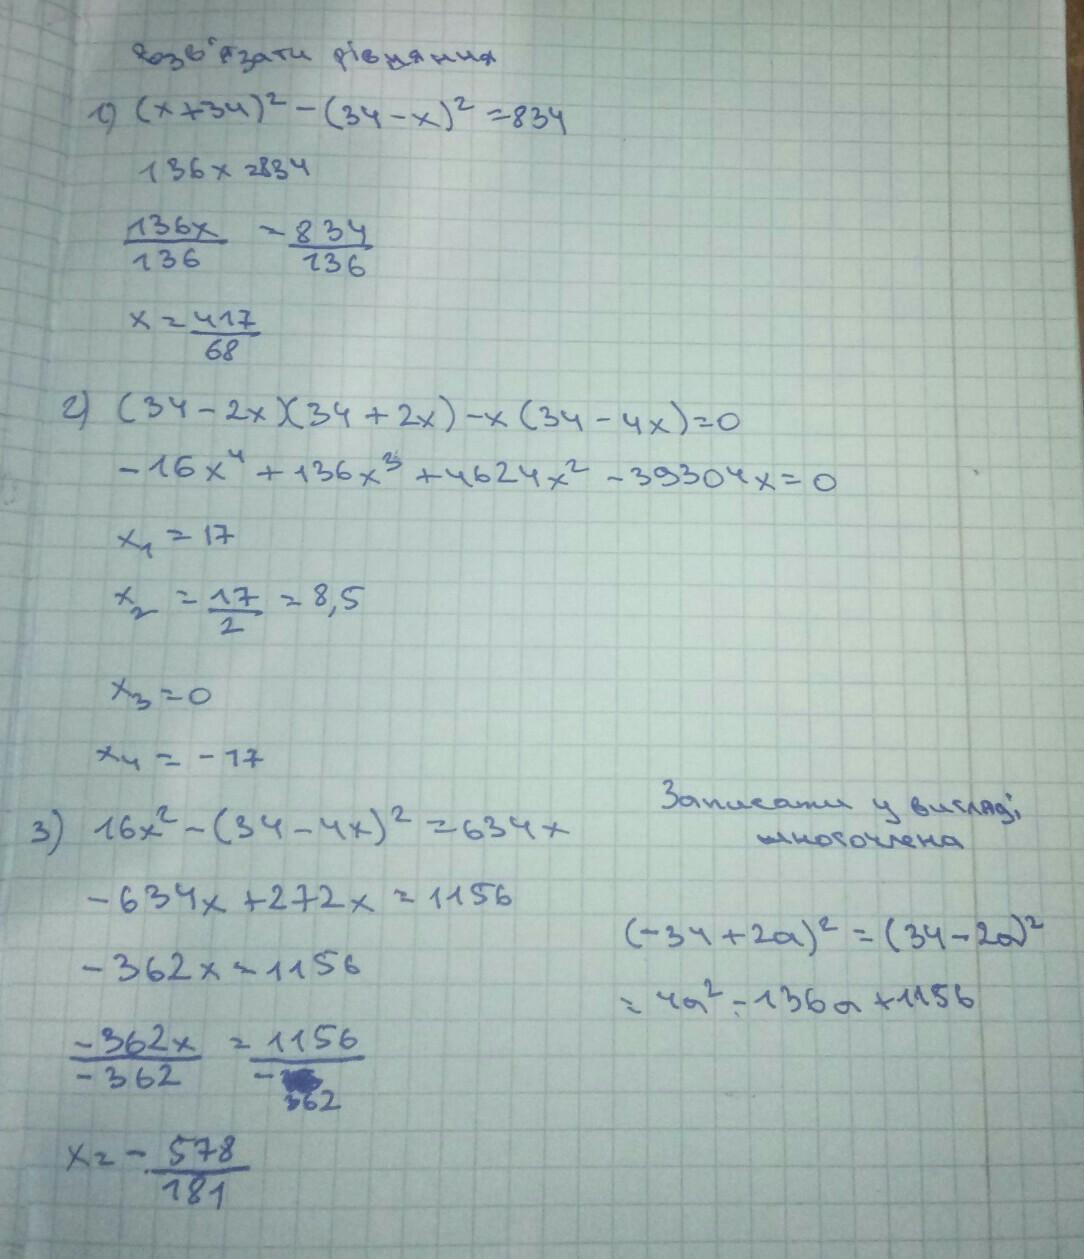 Розв'язати рівняння
1) (x+34)² - (34-x)² = 834
136x = 834
136x/136 = 834/136
x = 417/68
2) (34-2x)(34+2x)-x(34-4x)=0
-16x⁴ + 136x³ + 4624x² - 39304x = 0
x₁ = 17
x₂ = 17/2 = 8,5
x₃ = 0
x₄ = -17
3) 16x² - (34-4x)² = 634x
-634x + 272x = 1156
-362x = 1156
-362x/-362 = 1156/-362
x = - 578/181
Записати у вигляді
многочлена
(-34+2a)² = (34-2a)²
= 4a² - 136a + 1156